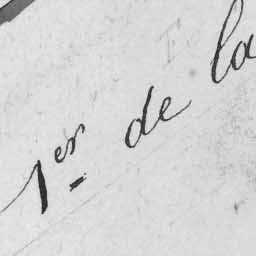 1er de la